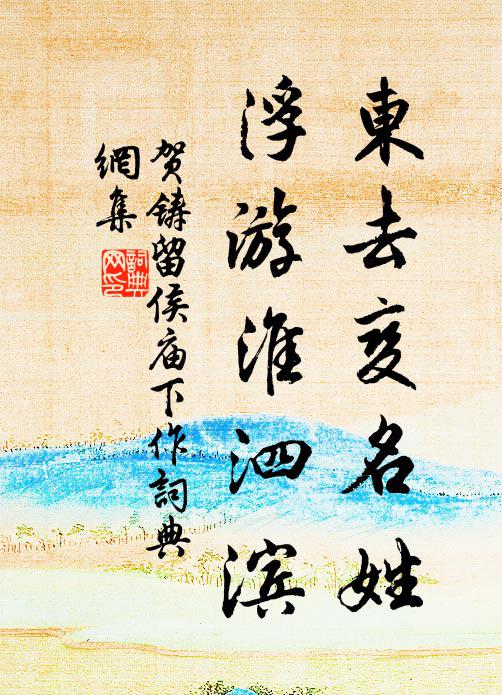 東去变名姓
浮游淮泗滨
贺鑄留侯庙下作詞典
網集
詞典
网印